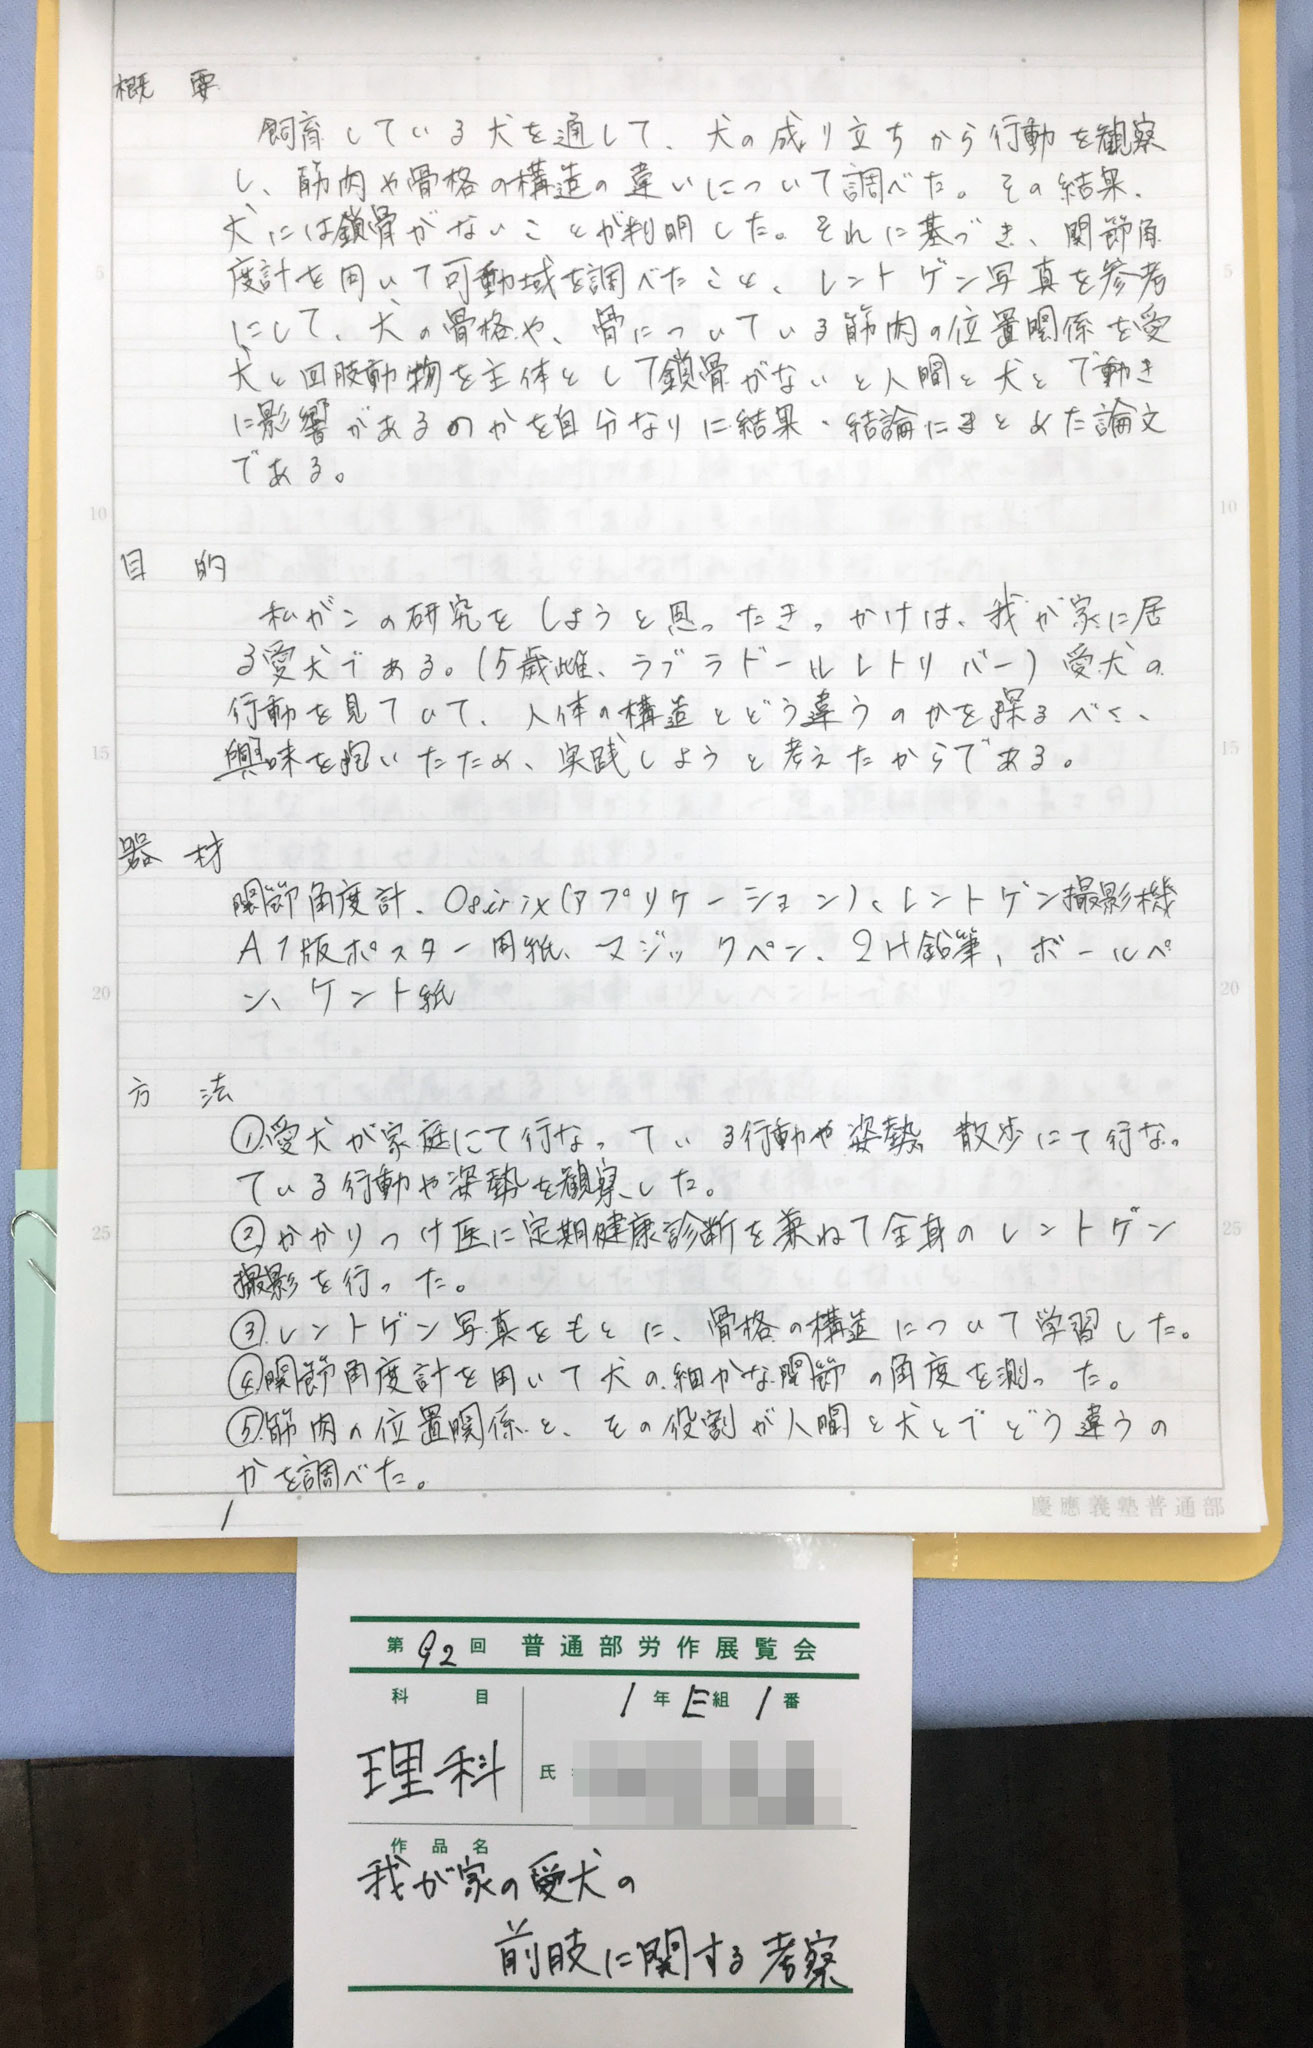 概要
飼育している犬を通して、犬の成り立ちから行動を観察
し、筋肉や骨格の構造の違いについて調べた。その結果、
犬には鎖骨がないことが判明した。それに基づき、関節角
度計を用いて可動域を調べたこと、レントゲン写真を参考
にして、犬の骨格や、骨についている筋肉の位置関係を愛
犬と四肢動物を主体として鎖骨がないと人間と犬とで動き
に影響があるのかを自分なりに結果・結論にまとめた論文
である。
目的
私がこの研究をしようと思ったきっかけは、我が家に居
る愛犬である。(5歳雌、ラブラドールレトリバー)愛犬の
行動を見ていて、人体の構造とどう違うのかを探るべく、
興味を抱いたため、実践しようと考えたからである。
器材
関節角度計、Osirix(アプリケーション)、レントゲン撮影機
A1版ポスター用紙、マジックペン、2H鉛筆、ボールペ
ン、ケント紙
方法
①愛犬が家庭にて行なっている行動や姿勢 散歩にて行なっ
ている行動や姿勢を観察した。
②かかりつけ医に定期健康診断を兼ねて全身のレントゲン
撮影を行った。
③レントゲン写真をもとに、骨格の構造について学習した。
④関節角度計を用いて犬の細かな関節の角度を測った。
⑤筋肉の位置関係と、その役割が人間と犬とでどう違うの
かを調べた。
1
慶應義塾普通部
5 5
10 10
15 15
20 20
25 25
第92回 普通部労作展覧会
科目 1年E組1番
理科 氏
作品名
我が家の愛犬の
前肢に関する考察